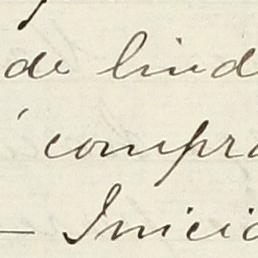 de lind
compra
— Inicia